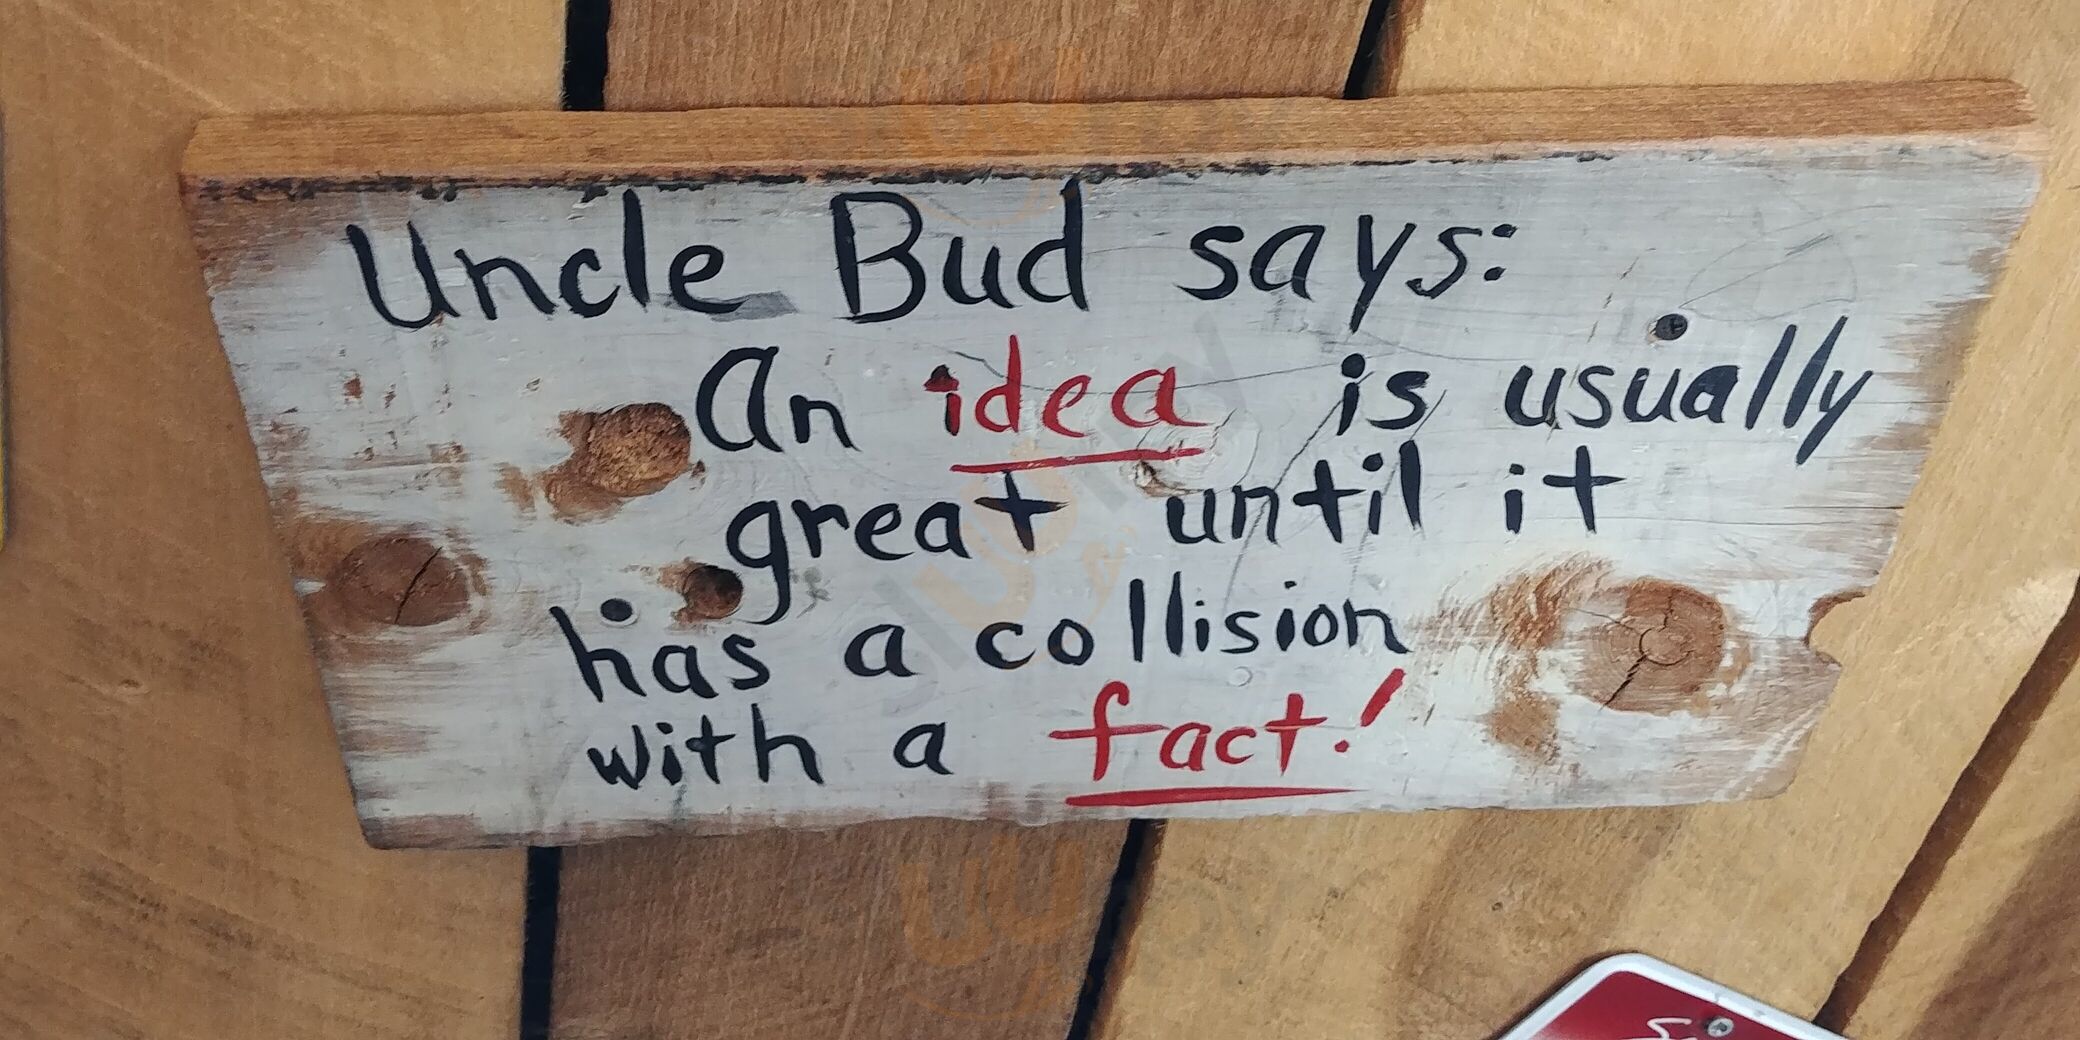 Uncle Bud says:
An idea is usually
great until it
has a collision
with a fact!